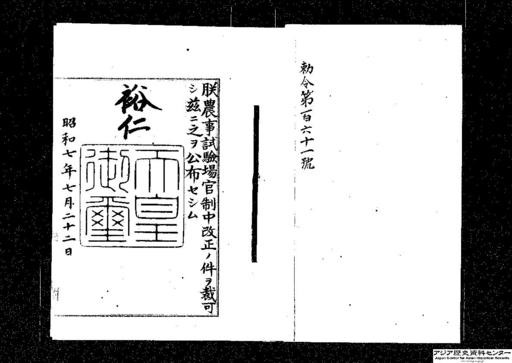 勅令第百六十一號
朕農事試驗場官制中改正ノ件ヲ裁可
シ茲ニ之ヲ公布セシム
裕仁
天皇
御璽
昭和七年七月二十二日
アジア歴史資料センター
Japan Center for Asian Historical Records